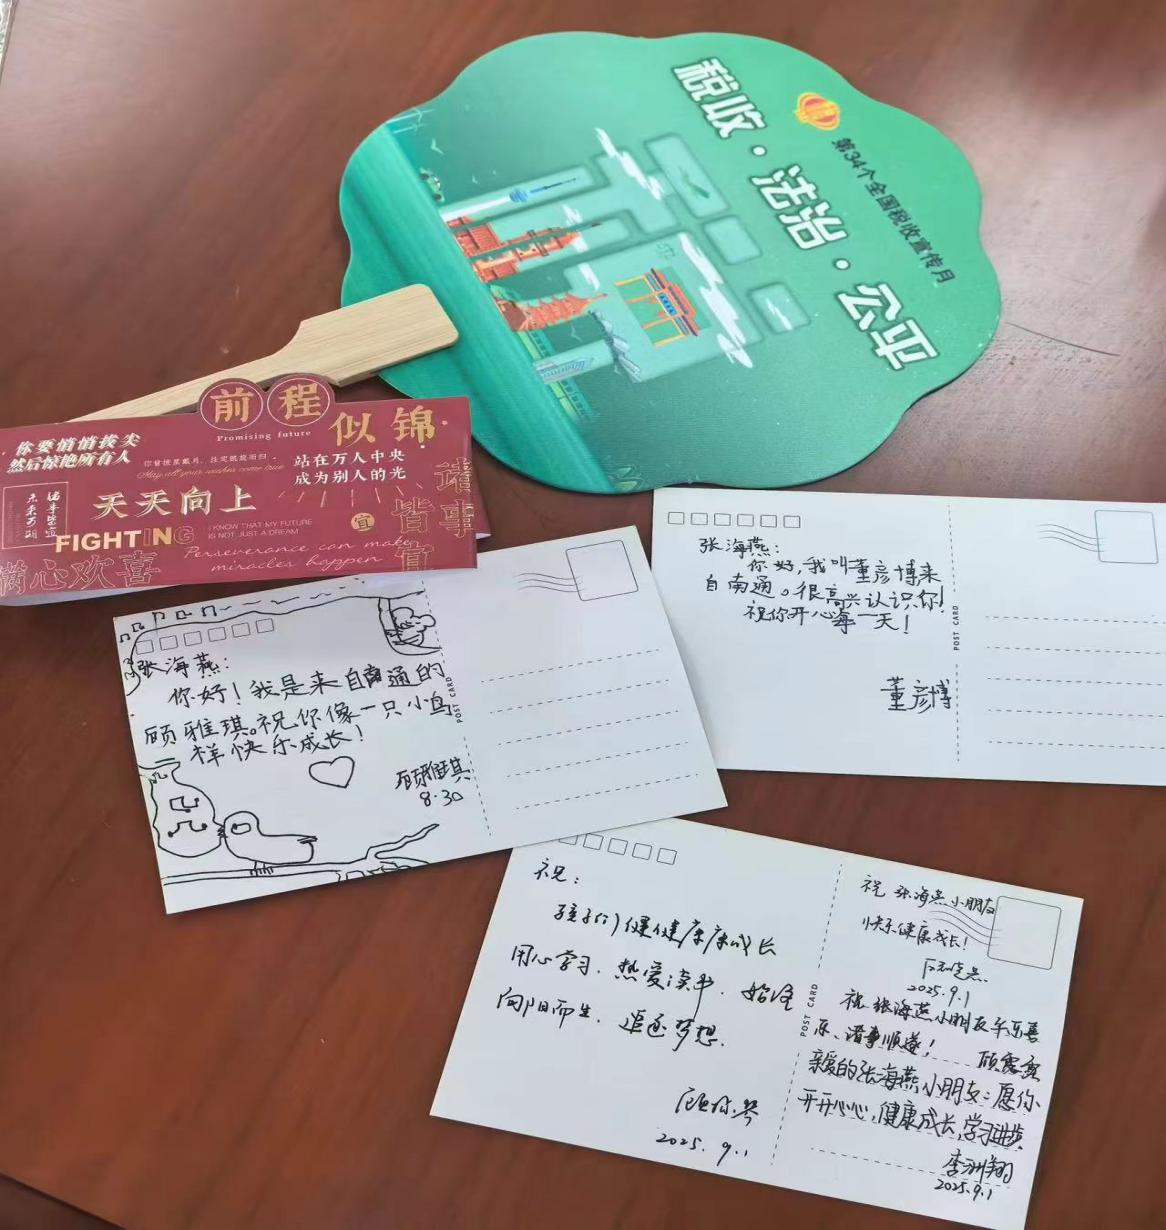 第34个全国税收宣传月
税收·法治·公平
前程
Promising future
似锦
你要悄悄拔尖
然后惊艳所有人
May all your wishes come true
站在万人中央
成为别人的光
诸事
皆宜
未来可期
诸事皆宜
天天向上
宜
FIGHTING
I KNOW THAT MY FUTURE
IS NOT JUST A DREAM
Perseverance can make
miracles happen
满心欢喜
张海燕:
你好,我叫董彦博来
自南通。很高兴认识你!
祝你开心每一天!
董彦博
POST CARD
张海燕:
你好!我是来自南通的
顾雅琪。祝你像一只小鸟
样快乐成长!
顾雅琪
8.30
POST CARD
祝:
孩子们健健康康成长
用心学习.热爱读书.始终
向阳而生.追逐梦想.
2025.9.1
POST CARD
祝张海燕小朋友
快乐健康成长!
2025.9.1
祝张海燕小朋友平安喜
乐、诸事顺遂!
亲爱的张海燕小朋友:愿你
开开心心,健康成长,学习进步
李洲翔
2025.9.1